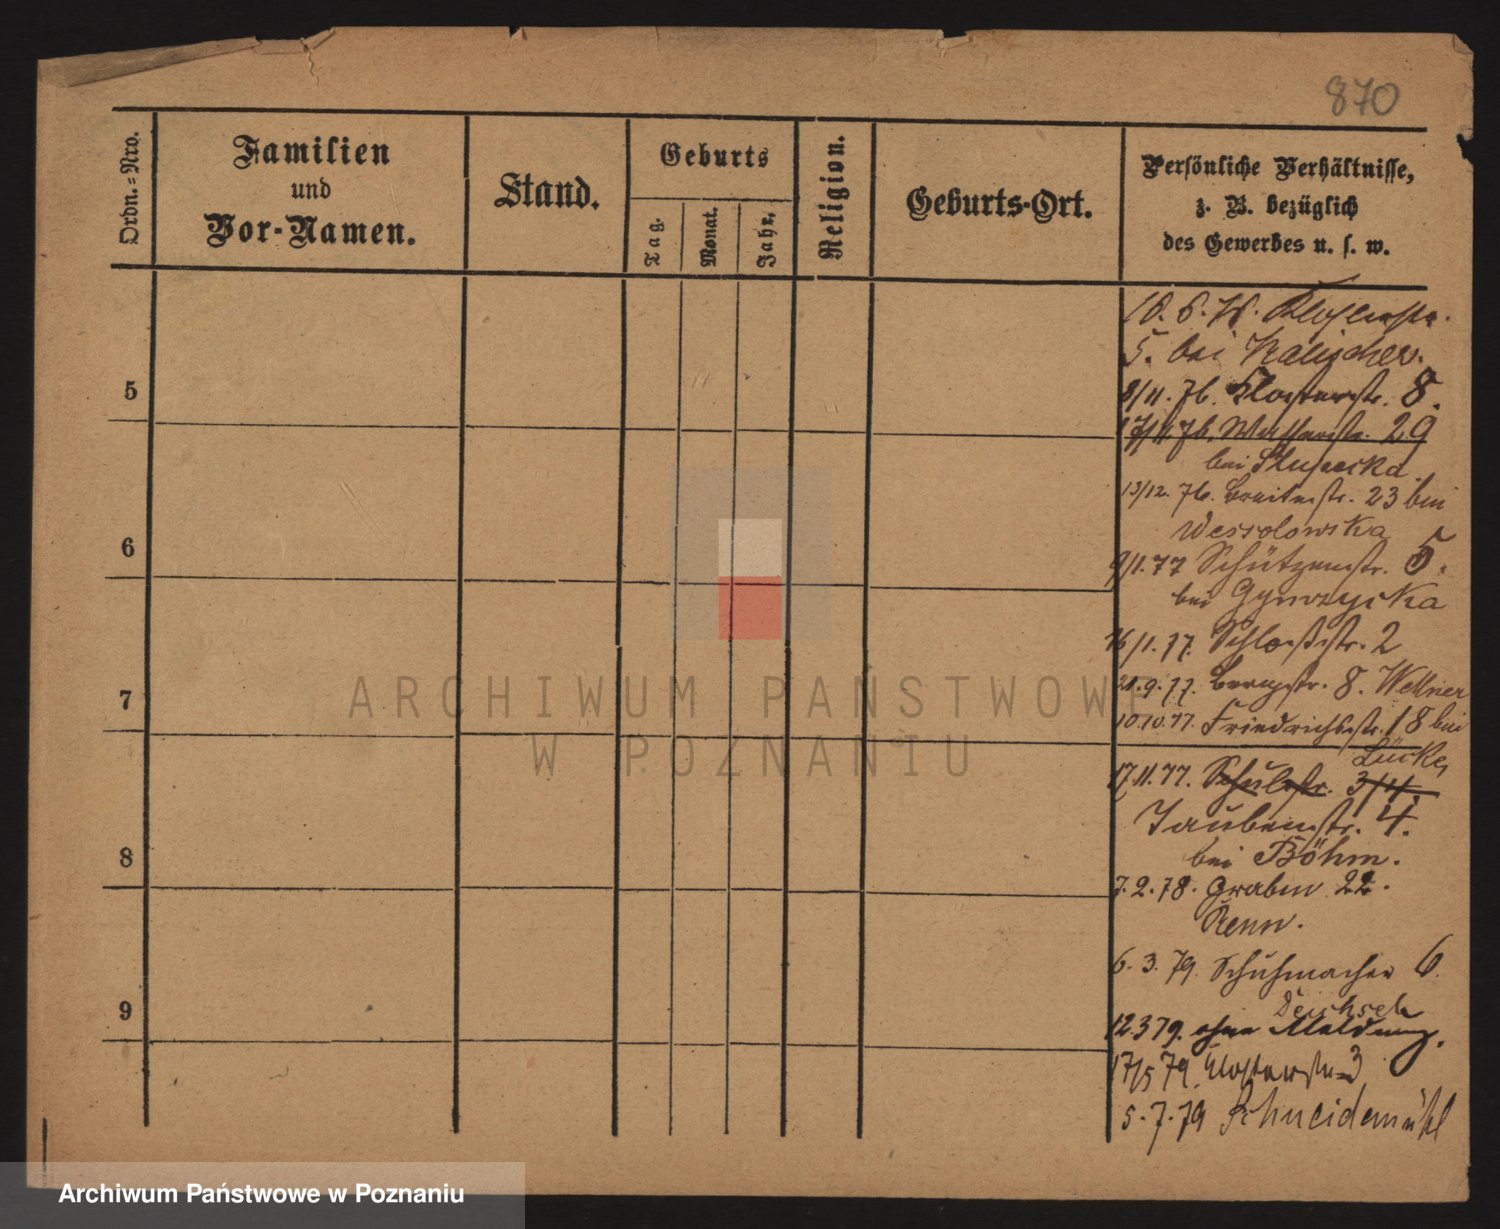 870
Ordn.-Nro.
Familien
und
Vor-Namen.
Stand.
Geburts
Tag.
Monat.
Jahr.
Religion.
Geburts-Ort.
Persönliche Verhältnisse,
z. B. bezüglich
des Gewerbes u. s. w.
10. 6. 76. Klosterstr.
5. bei Kalischer.
8/11. 76. Klosterstr. 8.
5
17/11. 76. Wasserstr. 29
bei
13/12. 76. Breitestr. 23 bei
Wessolowska
6
9/1. 77 Schützenstr. 5.
bei
16/1. 77. Schloßstr. 2
7
21. 9. 77. Bergstr. 8. Wellner
10. 10. 77. Friedrichsstr. 18 bei
Lücke
17. 11. 77. Schulstr. 3/4.
Taubenstr. 4.
8
bei Böhm.
7. 2. 78. Graben 22.
Renn.
6. 3. 79. Schuhmacher 6
Deichsel
9
12. 3 79. ohne Meldung.
17/5 79. Klosterstr. 3
5. 7. 79 Schneidemühl
ARCHIWUM PAŃSTWOWE
W POZNANIU
Archiwum Państwowe w Poznaniu